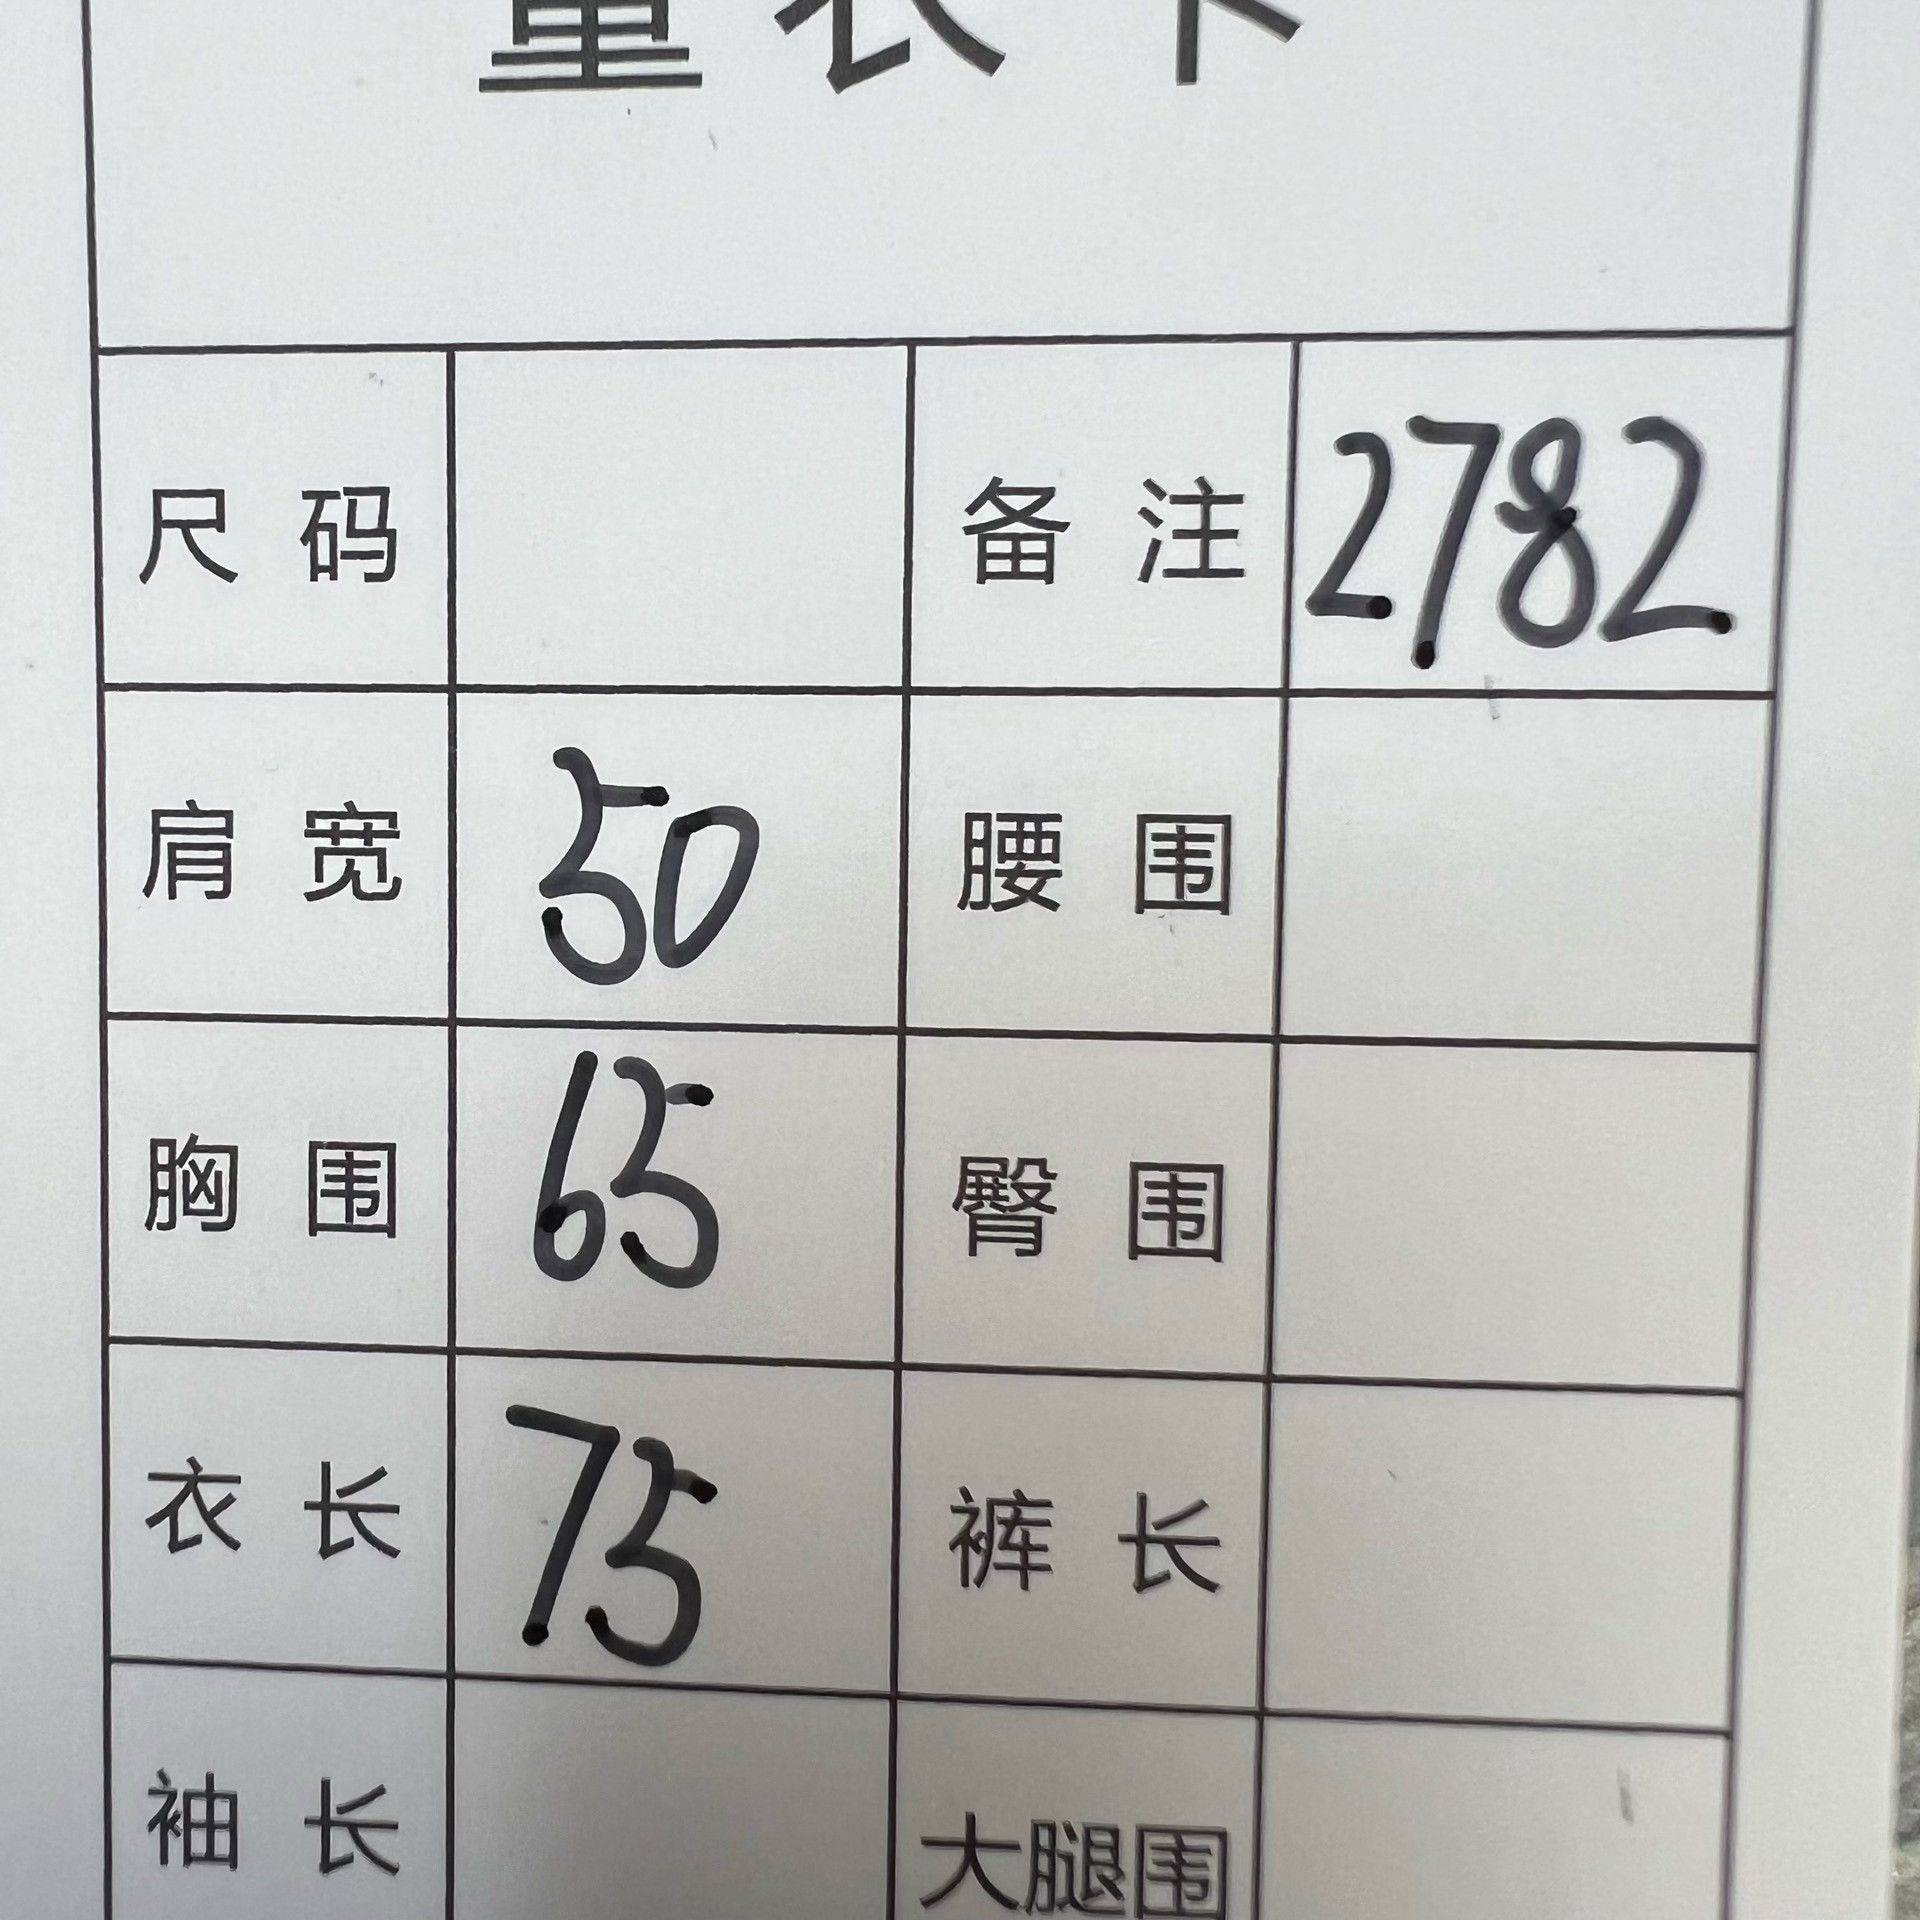 量衣卡
尺码 备注 2782
肩宽 50 腰围
胸围 65 臀围
衣长 75 裤长
袖长 大腿围